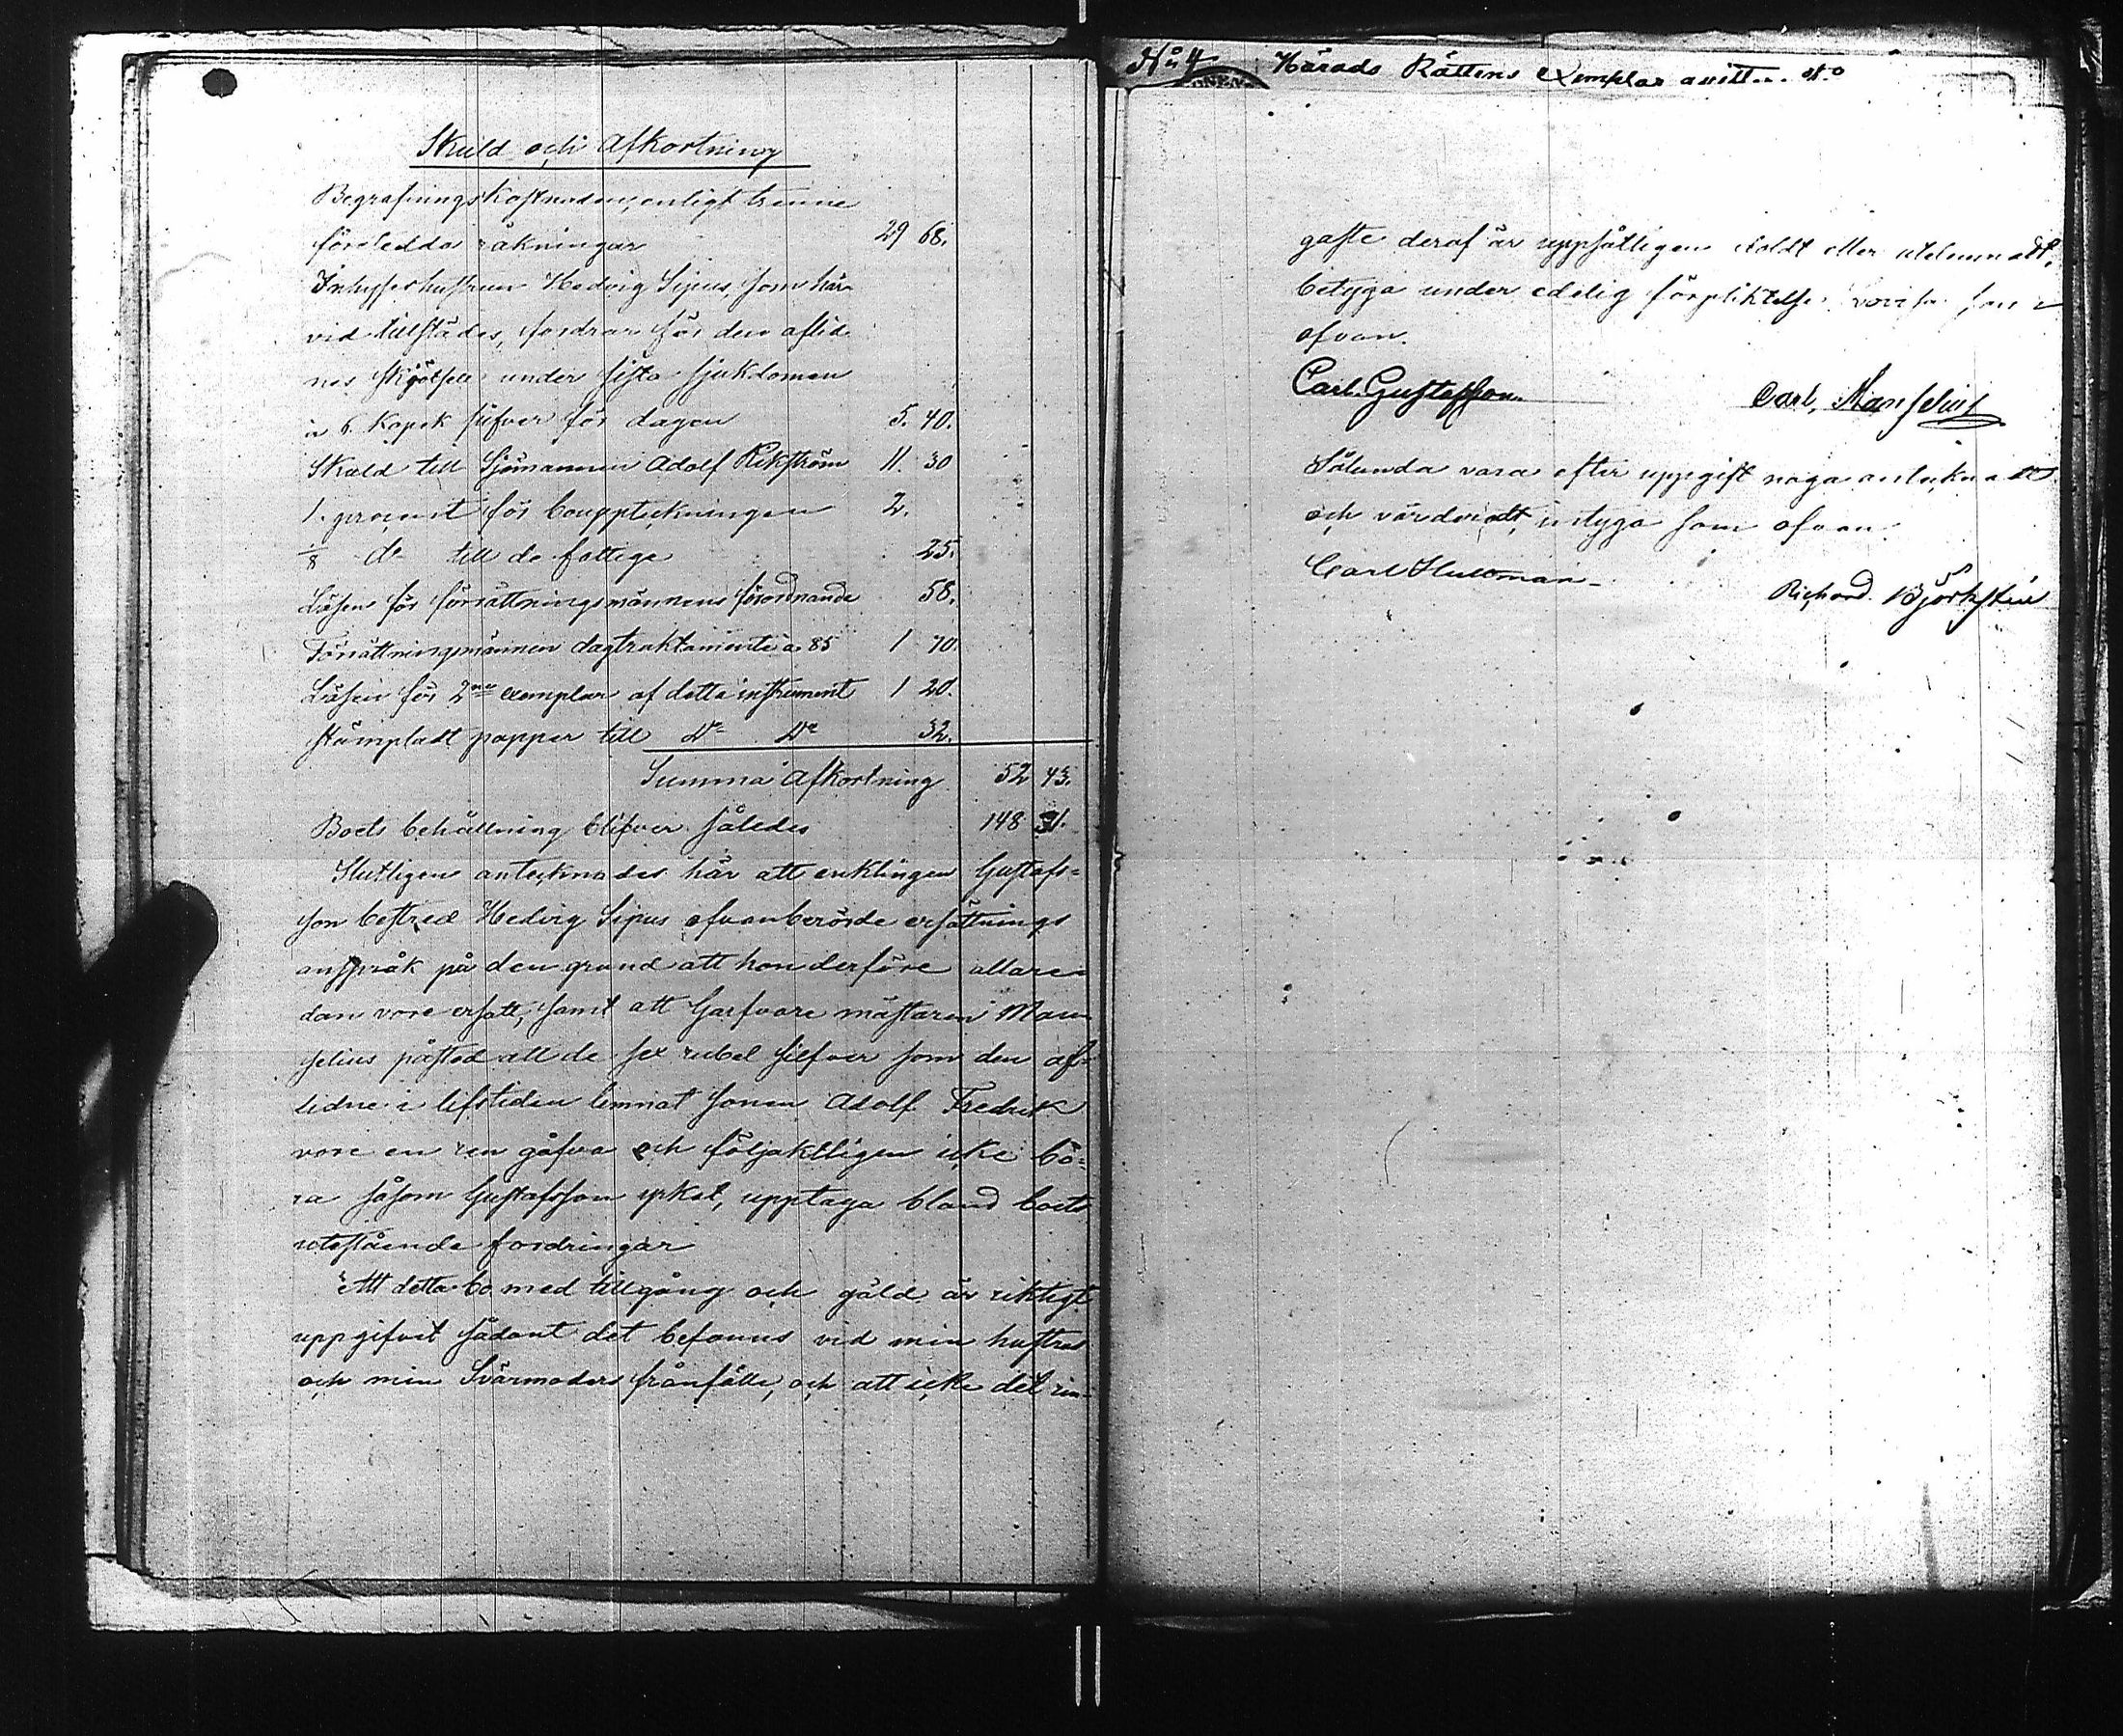 Skuld och Afkortning
Begrafningskostnaden, enligt trenne
företedda räkningar 29 68.
Inhyseshustrun Hedvig Sipus, som här
vid tillstädes, fordrar för den aflid
nes skjötsel under sista sjukdomen
à 6 kopek silfver för dagen 5. 40.
Skuld till Sjömannen Adolf Rikström 11. 30
1. procent för bouppteckningen 2.
1/8 do till de fattige 25.
Lösen för förrättningsmännens förordnande 58.
Förrättningsmännen dagtraktamente à 85 1 70.
Lösen för 2ne exemplar af detta instrument 1 20.
Stämpladt papper till Do Do 32.
Summa Afkortning 52 43.
Boets behållning blifver således 148 31.
Slutligen antecknades här att enklingen Gustafs=
son bestred Hedvig Sipus ofvanberörde ersättnings
anspråk på den grund att hon derföre allare=
dan vore ersatt, samt att Garfvare mästaren Man
selius påstod att de sex rubel silfver som den af=
lidne i lifstiden lemnat sonen Adolf Fredrik
vore en ren gåfva och följaktligen icke bö=
ra såsom Gustafsson yrkat, upptaga bland boets
utestående fordringar
Att detta bo med tillgång och gäld är riktigt
uppgifvit sådant det befanns vid min hustrus
och min Svärmoders frånfälle, och att icke det rin-
No 4 Härads Rättens exemplar
gaste deraf är uppsåtligen doldt eller utelemnadt,
betyga under edelig förpliktelse Lovisa som
ofvan.
Carl Gustafsson. Carl, Manselius
Sålunda vara efter uppgift noga antecknadt
och värderadt, intyga som ofvan.
Carl Hultman Richard Björkstén